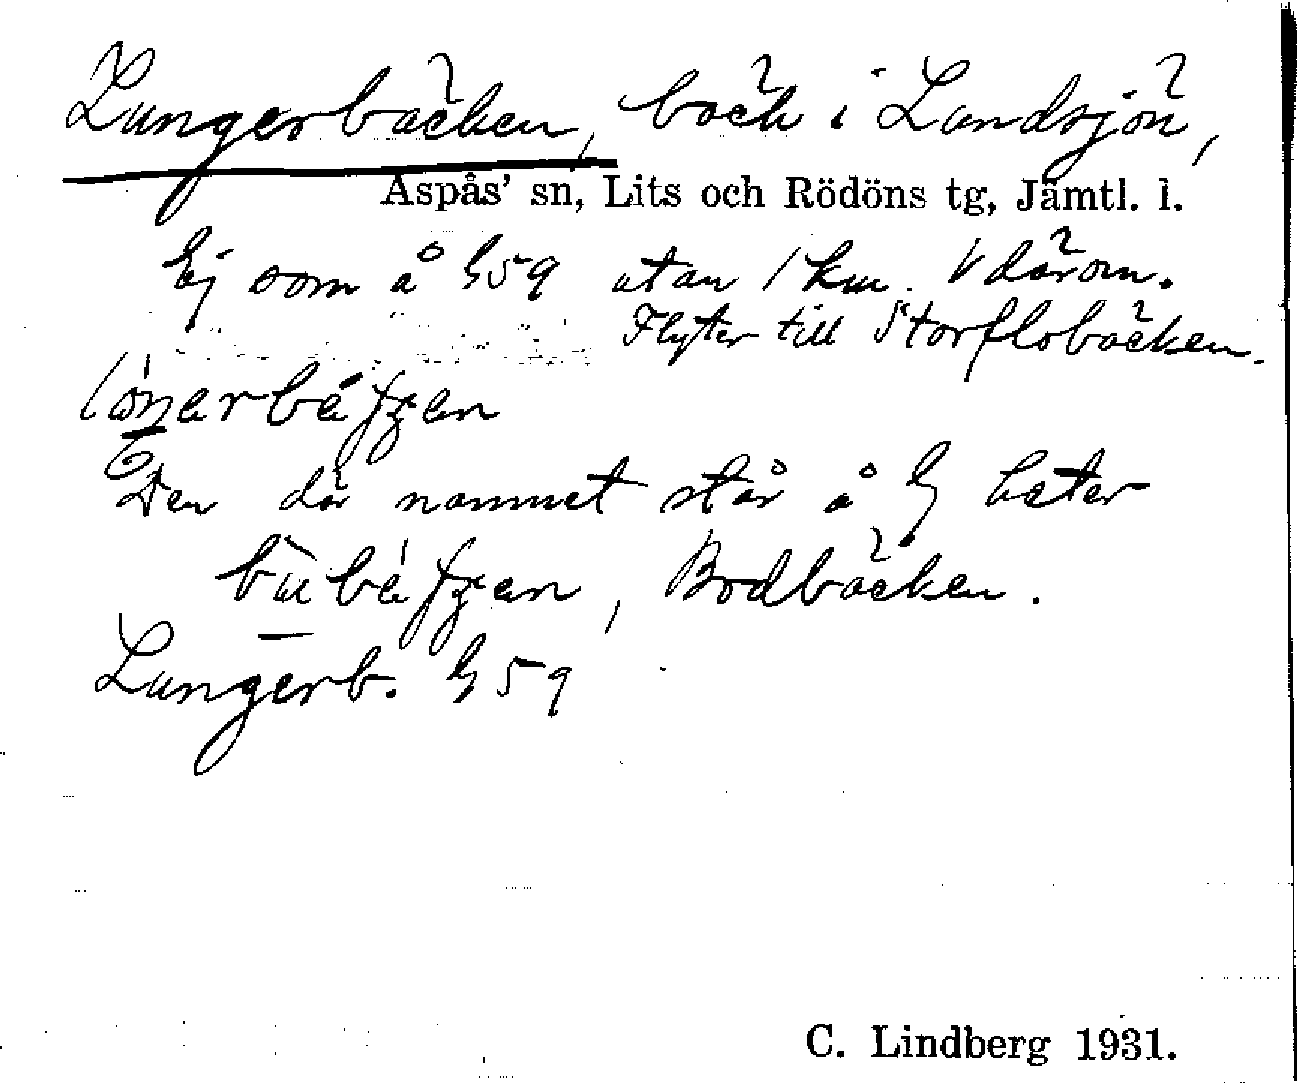 Lungerbäcken, bäck i Landsjön,
Aspås' sn, Lits och Rödöns tg, Jämtl. l.
Ej som å G59 utan 1 km. V därom.
Flyter till Storflobäcken.
Den där namnet står å G heter
Bodbäcken.
Lungerb. G 59
C. Lindberg 1931.